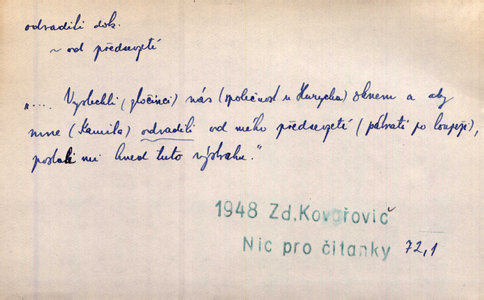 odradili dok.
~ od předsevzetí
„... Vyslechli (zločinci) nás (společnost u Hurycha) oknem a aby
mne (Kamila) odradili od mého předsevzetí (pátrati po loupeži),
poslali mi hned tuto výstrahu."
1948 Zd. Kovařovič
Nic pro čítanky 72,1